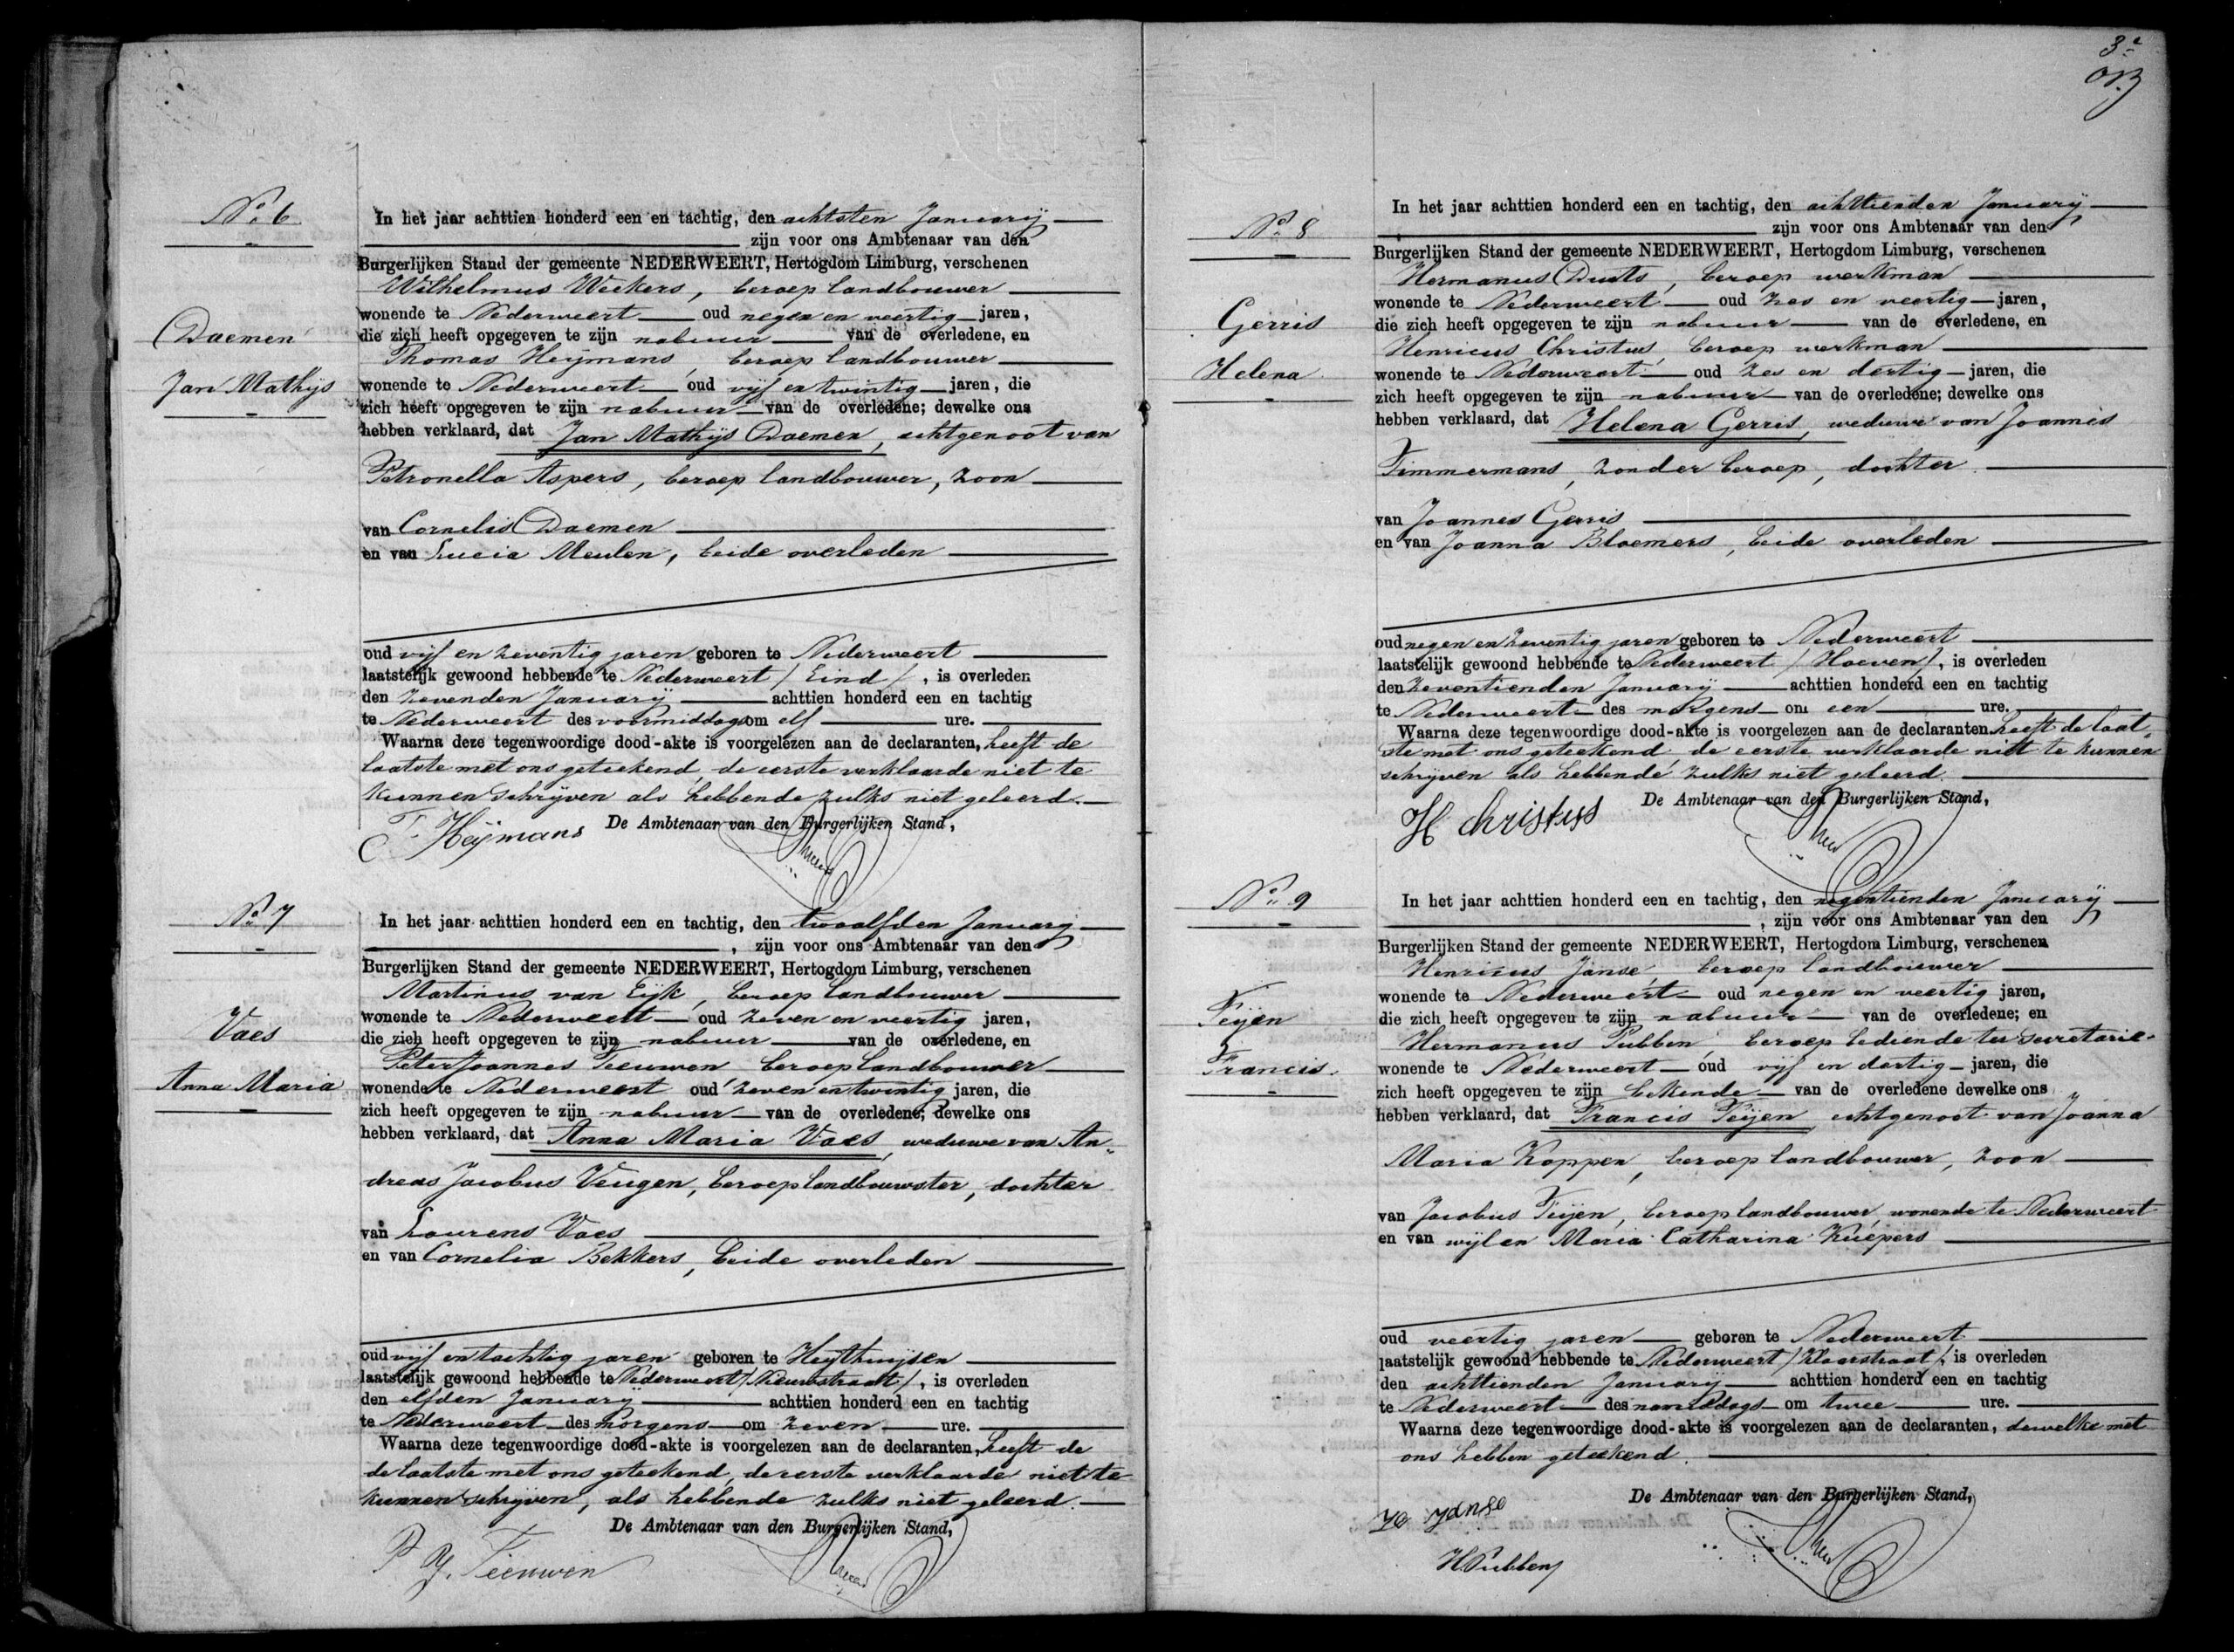 No. 6
Daemen
Jan Mathijs
In het jaar achttien honderd een en tachtig, den achtsten Januarij
zijn voor ons Ambtenaar van den
Burgerlijken Stand der gemeente NEDERWEERT, Hertogdom Limburg, verschenen
Wilhelmus Weekers, beroep landbouwer
wonende te Nederweert oud negen en veertig jaren,
die zich heeft opgegeven te zijn nabuur van de overledene, en
Thomas Heijmans, beroep landbouwer
wonende te Nederweert oud vijf en twintig jaren, die
zich heeft opgegeven te zijn nabuur van de overledene; dewelke ons
hebben verklaard, dat Jan Mathijs Daemen, echtgenoot van
Petronella Aspers, beroep landbouwer, zoon
van Cornelis Daemen
en van Lucia Meulen, beide overleden
oud vijf en zeventig jaren geboren te Nederweert
laatstelijk gewoond hebbende te Nederweert / Eind /, is overleden
den zevenden Januarij achttien honderd een en tachtig
te Nederweert des voormiddags om elf ure.
Waarna deze tegenwoordige dood-akte is voorgelezen aan de declaranten, heeft de
laatste met ons geteekend, de eerste verklaarde niet te
kunnen schrijven als hebbende zulks niet geleerd.
De Ambtenaar van den Burgerlijken Stand,
T. Heijmans
No. 7
Vaes
Anna Maria
In het jaar achttien honderd een en tachtig, den twaalfden Januarij
, zijn voor ons Ambtenaar van den
Burgerlijken Stand der gemeente NEDERWEERT, Hertogdom Limburg, verschenen
Martinus van Eijk, beroep landbouwer
wonende te Nederweert oud zeven en veertig jaren,
die zich heeft opgegeven te zijn nabuur van de overledene, en
Peter Joannes Teeuwen beroep landbouwer
wonende te Nederweert oud zeven en twintig jaren, die
zich heeft opgegeven te zijn nabuur van de overledene; dewelke ons
hebben verklaard, dat Anna Maria Vaes, weduwe van An„
dreas Jacobus Veugen, beroep landbouwster, dochter
van Laurens Vaes
en van Cornelia Bekkers, beide overleden
oud vijf en tachtig jaren geboren te Heythuijsen
laatstelijk gewoond hebbende te Nederweert / Nieuwstraat /, is overleden
den elfden Januarij achttien honderd een en tachtig
te Nederweert des morgens om zeven ure.
Waarna deze tegenwoordige dood-akte is voorgelezen aan de declaranten, heeft de
de laatste met ons geteekend, de eerste verklaarde niet te
kunnen schrijven, als hebbende zulks niet geleerd.
De Ambtenaar van den Burgerlijken Stand,
P J. Teeuwen
3e
No. 8
Gerris
Helena
In het jaar achttien honderd een en tachtig, den achttienden Januarij
zijn voor ons Ambtenaar van den
Burgerlijken Stand der gemeente NEDERWEERT, Hertogdom Limburg, verschenen
Hermanus Duits, beroep werkman
wonende te Nederweert oud zes en veertig jaren,
die zich heeft opgegeven te zijn nabuur van de overledene, en
Henricus Christus, beroep werkman
wonende te Nederweert oud zes en dertig jaren, die
zich heeft opgegeven te zijn nabuur van de overledene; dewelke ons
hebben verklaard, dat Helena Gerris, weduwe van Joannes
Timmermans, zonder beroep, dochter
van Joannes Gerris
en van Joanna Bloemers, beide overleden
oud negen en zeventig jaren geboren te Nederweert
laatstelijk gewoond hebbende te Nederweert / Hoeven /, is overleden
den zeventienden Januarij achttien honderd een en tachtig
te Nederweert des morgens om een ure.
Waarna deze tegenwoordige dood-akte is voorgelezen aan de declaranten heeft de laat„
ste met ons geteekend de eerste verklaarde niet te kunnen
schrijven als hebbende zulks niet geleerd.
De Ambtenaar van den Burgerlijken Stand,
H Christus
No. 9
Feijen
Francis.
In het jaar achttien honderd een en tachtig, den negentienden Januarij
, zijn voor ons Ambtenaar van den
Burgerlijken Stand der gemeente NEDERWEERT, Hertogdom Limburg, verschenen
Henricus Janse, beroep landbouwer
wonende te Nederweert oud negen en veertig jaren,
die zich heeft opgegeven te zijn nabuur van de overledene; en
Hermanus Pubben, beroep bediende ter secretarie
wonende te Nederweert oud vijf en dertig jaren, die
zich heeft opgegeven te zijn bekende van de overledene dewelke ons
hebben verklaard, dat Francis Feijen echtgenoot van Joanna
Maria Koppen, beroep landbouwer, zoon
van Jacobus Feijen, beroep landbouwer, wonende te Nederweert
en van wijlen Maria Catharina Kuepers
oud veertig jaren geboren te Nederweert
laatstelijk gewoond hebbende te Nederweert / Klaarstraat /, is overleden
den achttienden Januarij achttien honderd een en tachtig
te Nederweert des namiddags om twee ure.
Waarna deze tegenwoordige dood-akte is voorgelezen aan de declaranten, dewelke met
ons hebben geteekend.
De Ambtenaar van den Burgerlijken Stand,
Janse
H Pubben